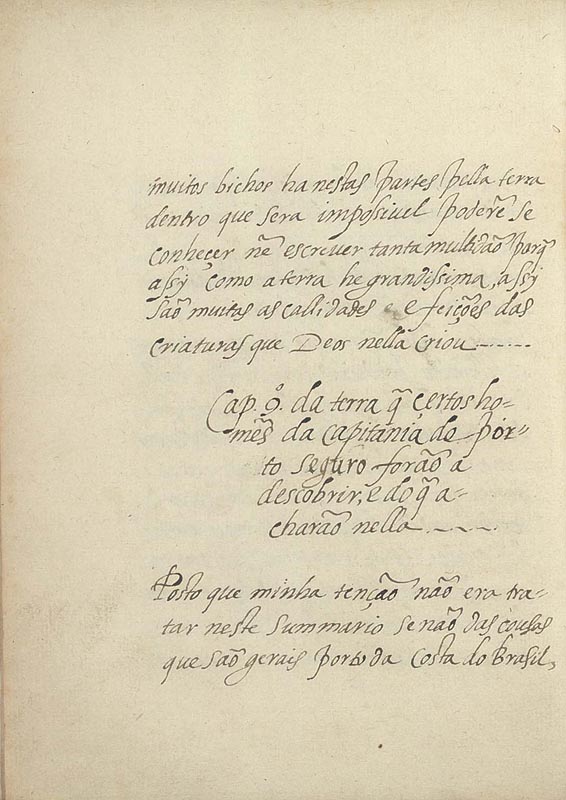 muitos bichos ha nestas partes pella terra
dentro que sera impossivel poderẽ se
conhecer nẽ escrever tanta multidão porq̃
assy como a terra he grandissima, assy
são muitas as callidades e e feições das
criaturas que Deos nella criou
Cap. 9.º da terra q̃ çertos ho-
mẽs da capitania de por-
to seguro forão a
descobrir, e do q̃ a-
charão nella
Posto que minha tenção não era tra-
tar neste summario senão das cousas
que são gerais por toda Costa do Brasil,